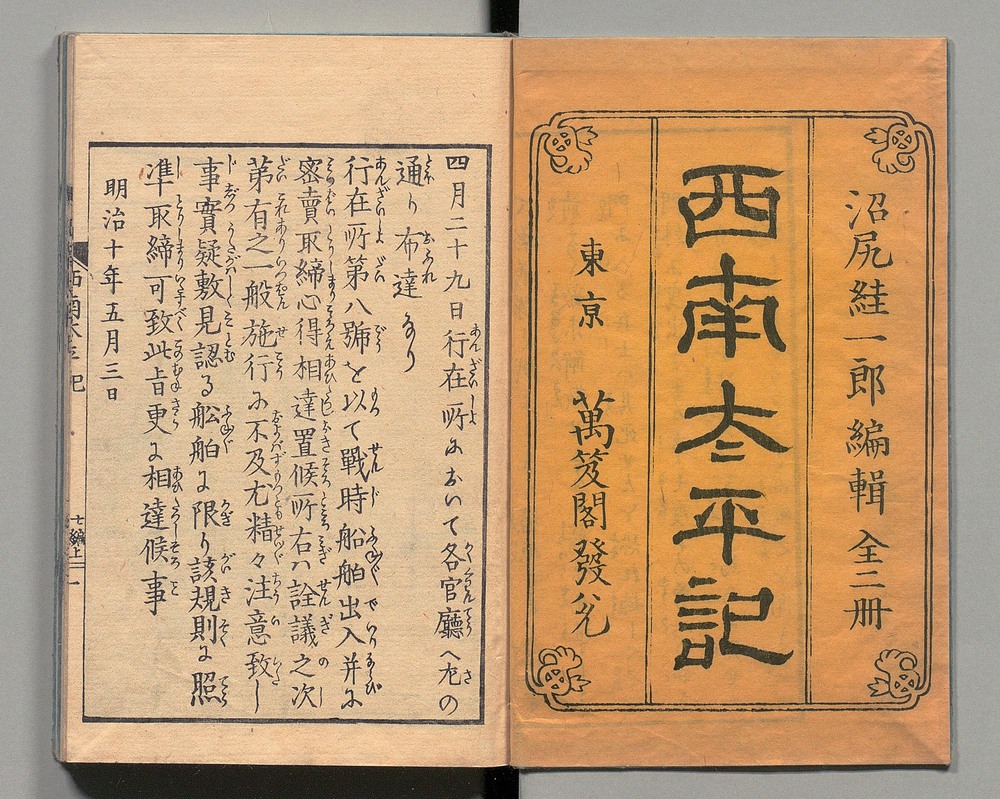 沼尻絓一郎編輯 全二冊
西南太平記
東京 萬笈閣發兌
四月二十九日行在所において各官廳へ左の
通り布達あり
行在所第八號を以て戰時船舶出入并に
密賣取締心得相達置候所右ハ詮議之次
第有之一般施行に不及尤精々注意致し
事實疑敷見認る船舶に限り該規則に照
凖取締可致此旨更に相達候事
明治十年五月三日
西南太平記
七編上 一